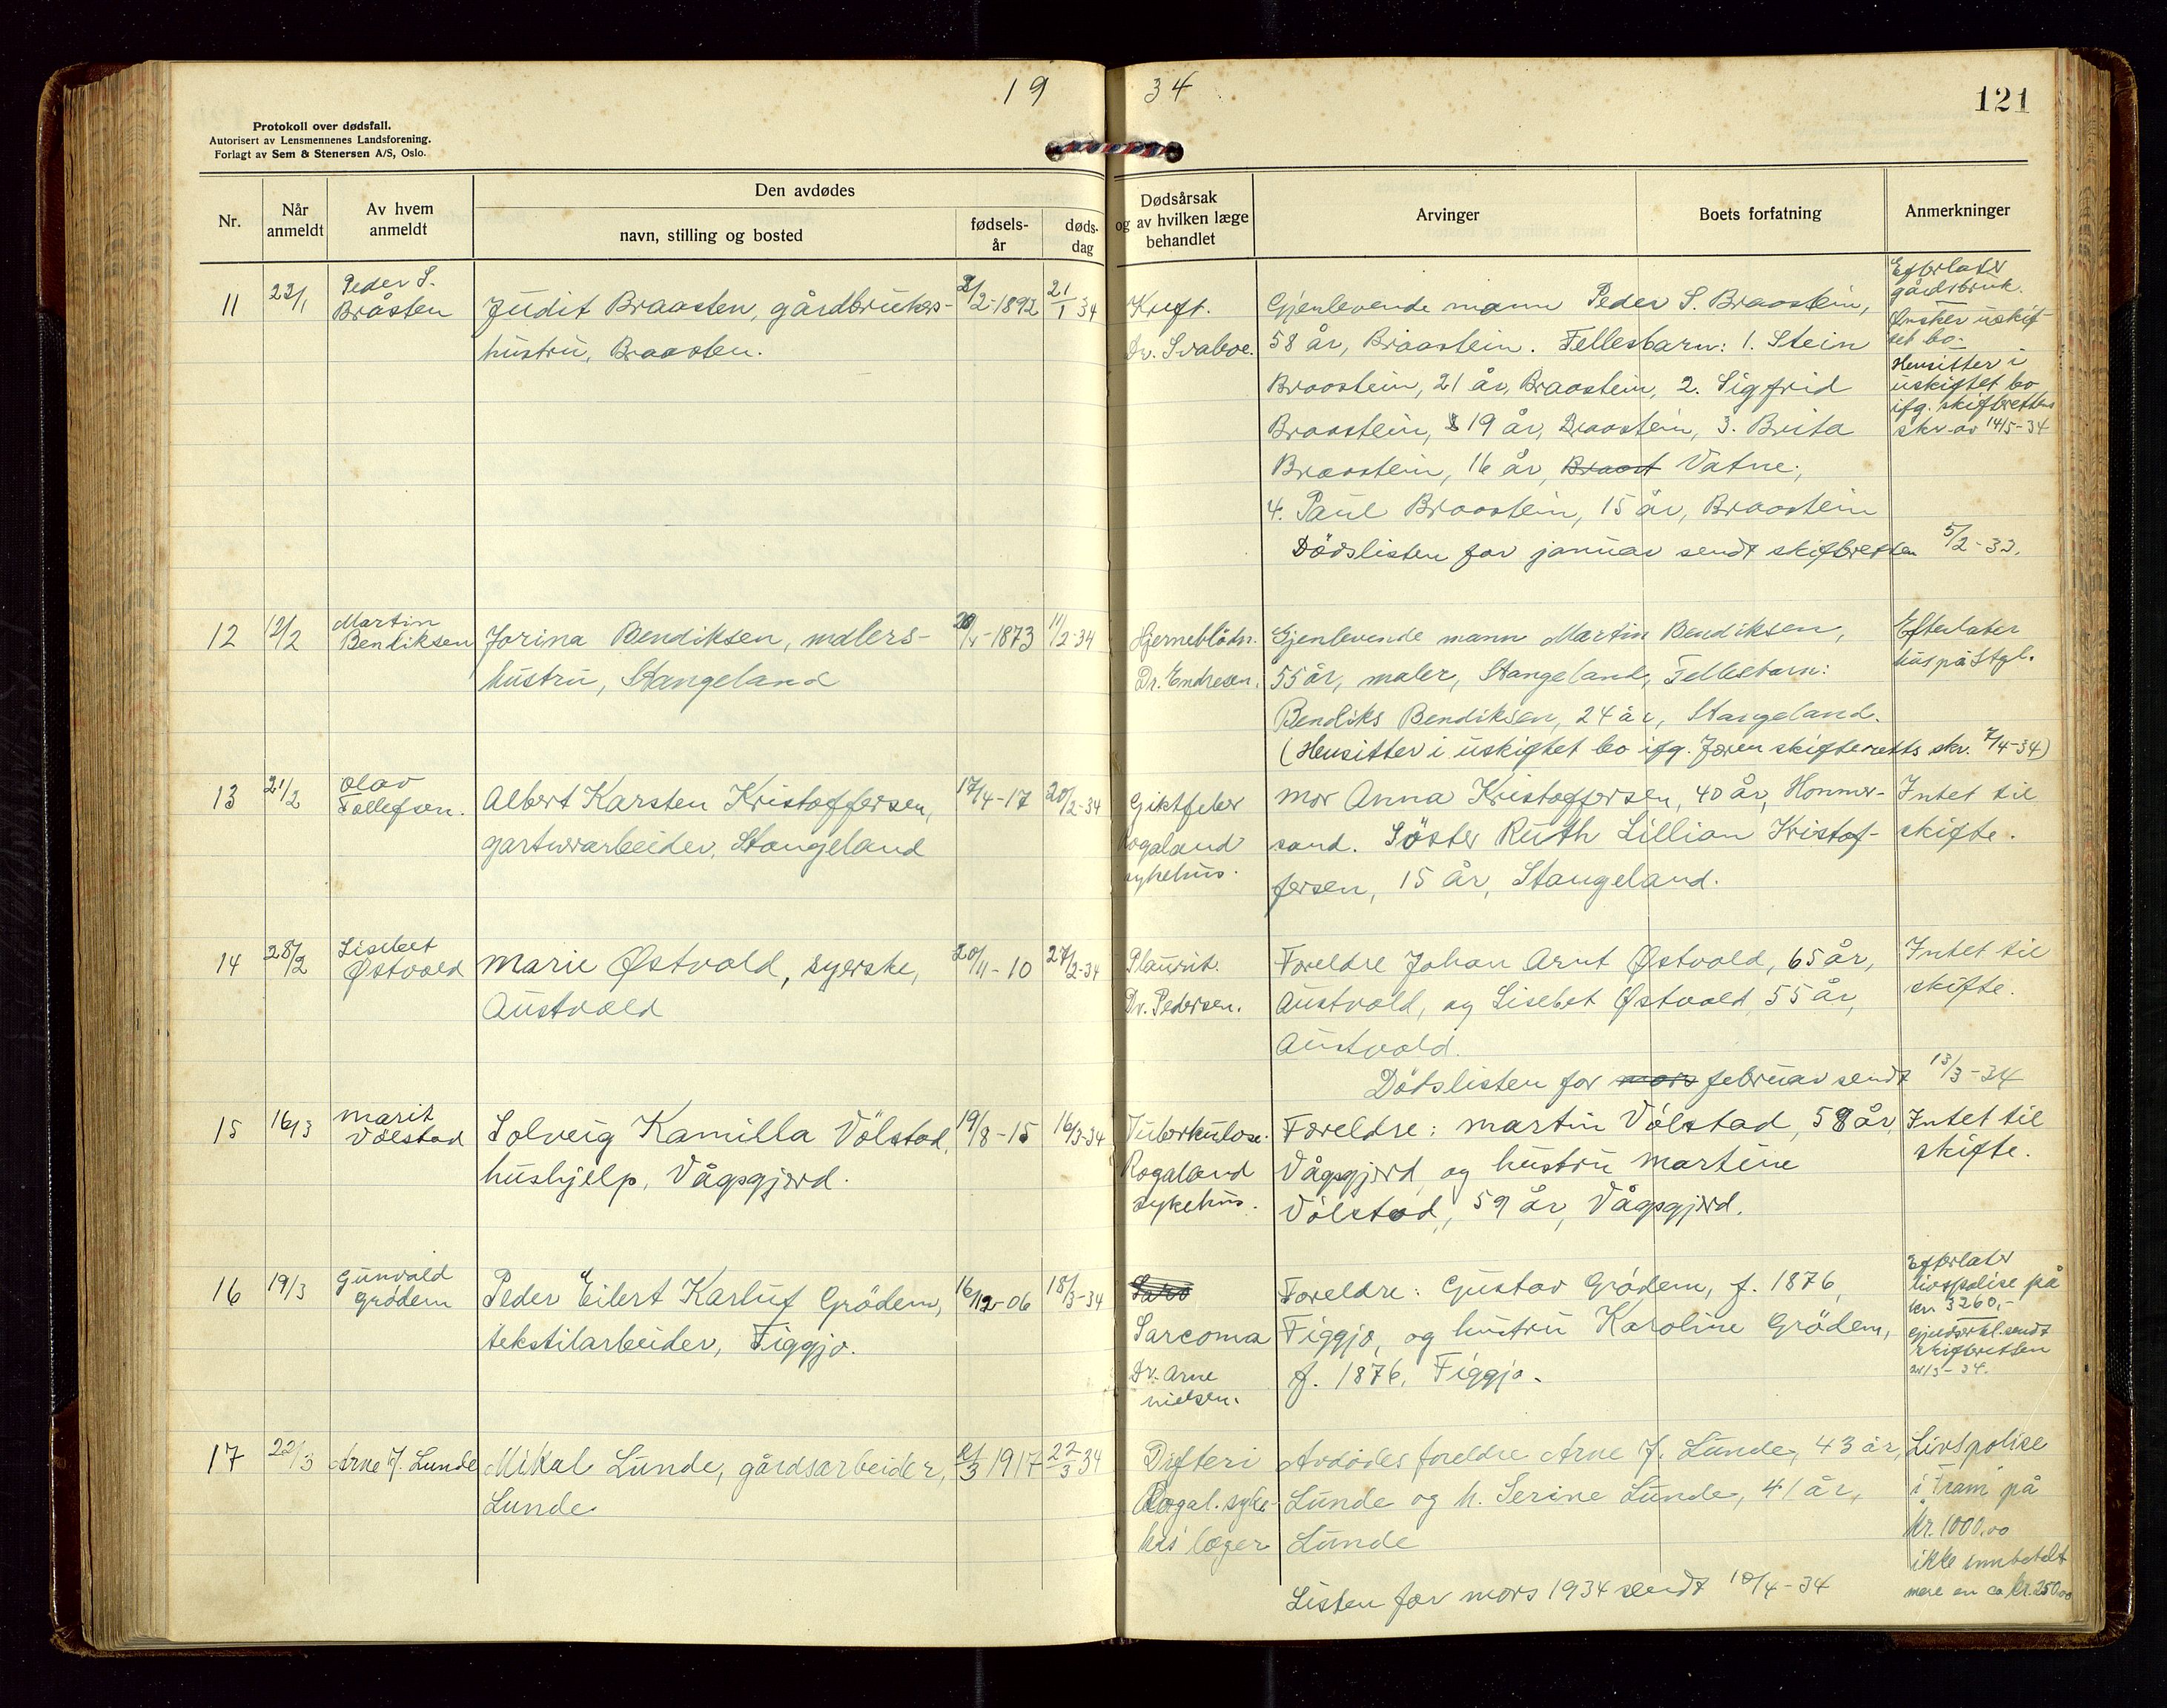 19 34
121
Protokoll over dødsfall.
Autorisert av Lensmennenes Landsforening.
Forlagt av Sem & Stenersen A/S, Oslo.
Nr.
Når anmeldt
Av hvem anmeldt
Den avdødes
navn, stilling og bosted
fødsels-år
døds-dag
Dødsårsak og av hvilken læge behandlet
Arvinger
Boets forfatning
Anmerkninger
11
23/1
Peder S.
Bråsten
Judit Braasten, gårdbrukers-
hustru, Braasten.
2/12-1892
21/1 34
Kreft.
Dr. Svaboe.
Gjenlevende mann Peder S. Braastein,
58 år, Braastein. Fellesbarn: 1. Stein
Braastein, 21 år, Braastein, 2. Sigfrid
Braastein, 19 år, Braastein, 3. Brita
Braastein, 16 år, Braast Vatne,
4. Paul Braastein, 15 år, Braastein
Dödslisten for januar sendt skifteretten 5/2-33.
Efterlater
gårdsbruk.
Ønsker uskif-
tet bo.
Hensitter i
uskiftet bo
ifg. skifterettens
skr. av 14/5-34
12
12/2
Martin
Bendiksen
Jorina Bendiksen, malers-
hustru, Stangeland
-1873
11/2-34
Hjerneblödn.
Dr. Endresen.
Gjenlevende mann Martin Bendiksen,
55 år, maler, Stangeland, Fellesbarn:
Bendiks Bendiksen, 24 år, Stangeland.
(Hensitter i uskiftet bo ifg. Jæren skifteretts skr. 7/4-34)
Efterlater
hus på Stgl.
13
21/2
Olav
Tollefsen.
Albert Karsten Kristoffersen,
gartnerarbeider, Stangeland
17/4-17
20/2-34
Giktfeber
Rogaland
sykehus.
Mor Anna Kristoffersen, 40 år, Hommer-
sand. Söster Ruth Lillian Kristof-
fersen, 15 år, Stangeland.
Intet til
skifte.
14
28/2
Lisebet
Østvold
Marie Østvold, syerske,
Austvold
20/11-10
27/2-34
Plaurit.
Dr. Pedersen.
Foreldre Johan Arnt Østvold, 65 år,
Austvold, og Lisebet Østvold, 55 år,
Austvold.
Dödslisten for mars februar sendt 13/3-34
Intet til
skifte.
15
16/3
Marit
Völstad
Solveig Kamilla Völstad,
hushjelp, Vågsgjerd.
19/8-15
16/3-34
Tuberkulose.
Rogaland
sykehus.
Foreldre: Martin Völstad, 58 år,
Vågsgjerd, og hustru Martine
Völstad, 59 år, Vågsgjerd.
Intet til
skifte.
16
19/3
Gunvald
Grödem
Peder Eilert Karluf Grödem,
tekstilarbeider, Figgjo.
16/12-06
18/3-34
Sarcoma
Dr. Arne
Nielsen.
Foreldre: Gustav Grödem, f. 1876,
Figgjo, og hustru Karoline Grödem,
f. 1876, Figgjo.
Efterlater
livspolise på
kr. 3260,-
Gjeldserkl. sendt
skifteretten
-34.
17
22/3
Arne J. Lunde
Mikal Lunde, gårdsarbeider,
Lunde
/3 1917
22/3 34
Difteri
Rogal. syke-
hus' læger
Avdødes foreldre Arne J. Lunde, 43 år,
Lunde og h. Serine Lunde, 41 år,
Lunde
Listen for mars 1934 sendt 10/4-34
Livspolise
i Fram på
kr. 1000.00
ikke innbetalt
mere en ca kr. 250.00